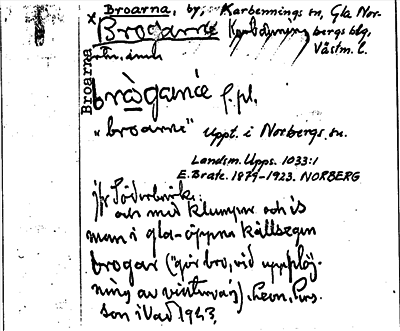 Broarna, by, Karbennings sn, Gla Nor-
Brogarne Karbenning bergs blg,
Västm. l.
Broarna
bròganịe f. pl.
"broarne" Uppt. i Norbergs sn.
Landsm. Upps. 1033:1
E. Brate. 1879-1923. NORBERG
jfr Söderbärke:
och med klumpar och is
man i gla-öppna källsegen
brogar ("gör bro, vid upplöj-
ning av vinterväg).
son i Vad 1923.